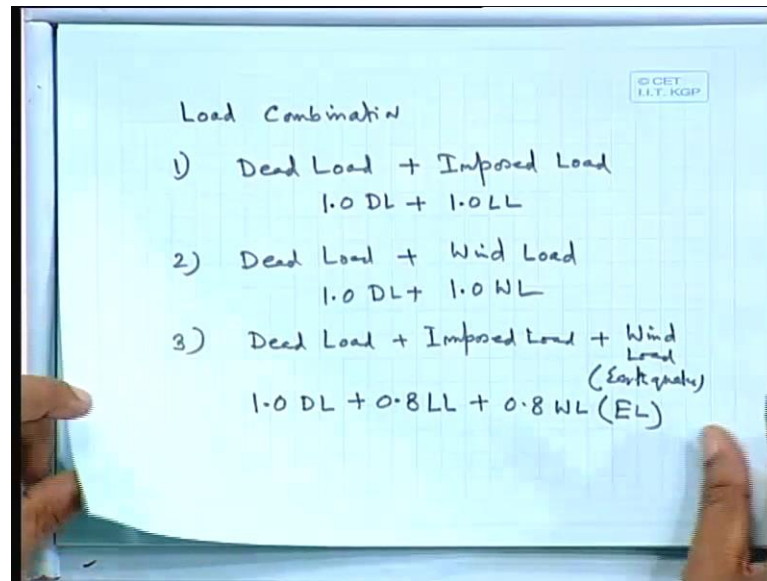 © CET
I.I.T. KGP
Load Combination
1) Dead Load + Imposed Load
1.0 DL + 1.0 LL
2) Dead Load + Wind Load
1.0 DL + 1.0 WL
3) Dead Load + Imposed Load + Wind
Load
(Earthquake)
1.0 DL + 0.8 LL + 0.8 WL (EL)